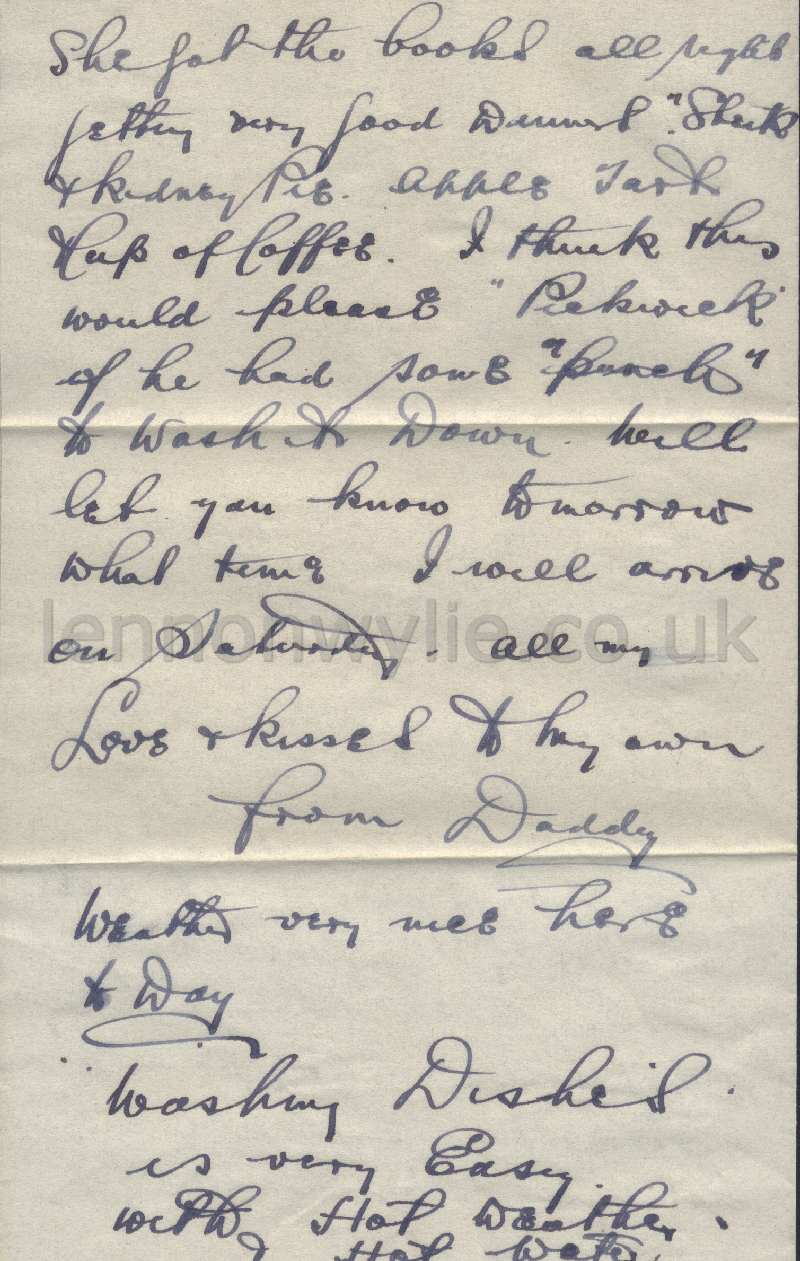 She got the books all right
getting very good Dinners. "Steak
& Kidney Pie. Apple Tart
& Cup of Coffee. I think this
would please "Pickwick"
if he had some "punch"
to Wash it Down. Will
let you know tomorrow
what time I will arrive
on Saturday. all my
Love & kisses to my own
from Daddy
Weather very nice here
to Day
"Washing Dishes
is very Easy
with Hot Weather.
& Hot Water.
lennonwylie.co.uk